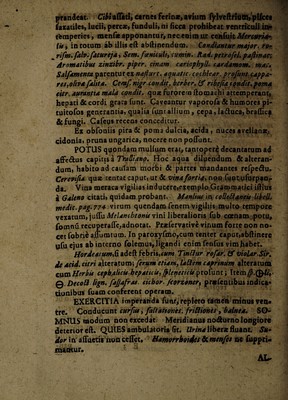 prandeat. Cibi assati, carnes ferinæ, avium sylvestrium, pisces
saxatiles, lucii, percæ, funduli, ni sicca prohibeat ventriculi in-
temperies, mensæ apponantur, nec enim ut censuit Mercuria-
lis, in totum ab illis est abstinendum. Condiantur major. ro-
rism. salv. satureja, Sem. sœniculi, cumin. Rad. petroselj. pastinac.
Aromatibus zinzibr. piper. cinam. cariophyll. cardamom. mac.
Salsamenta parentur ex nasturt. aquatic. cochlear. prosunt cappa-
res, oliva salita. Cons. myr. condit. berber. & ribesia condit. poma
citr. aurantia mala condit. quæ fotorem stomachi attemperant,
hepati & cordi grata sunt. Caveantur vaporosa & humores pi-
tuitosos generantia, qualia sunt alium, cepa, lactuca, brassica
& fungi. Caseus recens conceditur.
Ex obsoniis pira & poma dulcia, acida, nuces avellanæ,
cidonia, pruna ungarica, nocere non possunt.
POTUS quondam multum erat, tantopere decantarum ad
affectus capitis à Thessano. Hoc aqua diluendum & alteran-
dum, habito ad causam morbi & partes mandantes respectu.
Cerevisia quæ tentat caput, ut & vina fortia, non sunt usurpan-
da. Vina meraca vigilias inducere, exemplo Grammatici istius
à Galeno citati, quidam probant. Manlius in collectaneis libell.
medic. pag. 774. virum quendam senem vigiliis multo tempore
vexatum, jussu Melanchtonis vini liberalioris sub cœnam potu,
somnũ recuperasse, adnotat. Præservativè vinum forte non no-
cet sobriè assumtum. In paroxysmo, cum tenter caput, abstinere
usu ejus ab interno solemus, ligandi enim sensus vim habet.
Hordeaceum, si adest febris, cum Tinctur rosar. & violar. Sir.
de acid. citri alteratum; serum etiam, lactem caprinum alteratum
cum Herbis cephalicis hepaticis, spleneticis prosunt; Item
Decoct lign. sassafras. cichor. scorzoner, præsentibus indica-
tionibus suam conferent operam.
EXERCITIA imperanda sunt, repleto tamen minus ven-
tre. Conducunt cursus, saltationes, frictiones, balnea. SO-
MNUS modum non excedat. Meridianus nocturno longiore
deterior est. QUIES ambulatoria sit. Urina liberè fluant. Su-
dor in assuetis non cesset. Hæmorrhoides & menses ne suppri-
mantur.
AL-